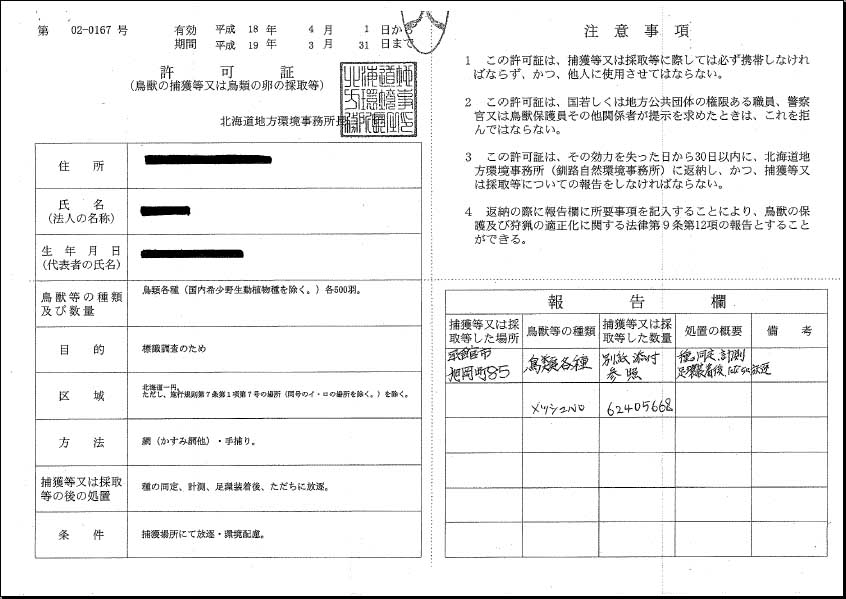 第 02-0167 号
有効 平成 18 年 4 月 1 日から
期間 平成 19 年 3 月 31 日まで
許可証
(鳥獣の捕獲等又は鳥類の卵の採取等)
北海道地方環境事務所長
住所
氏名
(法人の名称)
生年月日
(代表者の氏名)
鳥獣等の種類
及び数量
鳥類各種(国内希少野生動植物種を除く。)各500羽。
目的
標識調査のため
区域
北海道一円。
ただし、施行規則第7条第1項第7号の場所(同号のイ・ロの場所を除く。)を除く。
方法
網(かすみ網他)・手捕り。
捕獲等又は採取
等の後の処置
種の同定、計測、足環装着後、ただちに放逐。
条件
捕獲場所にて放逐・環境配慮。
注意事項
1 この許可証は、捕獲等又は採取等に際しては必ず携帯しなけれ
ばならず、かつ、他人に使用させてはならない。
2 この許可証は、国若しくは地方公共団体の権限ある職員、警察
官又は鳥獣保護員その他関係者が提示を求めたときは、これを拒
んではならない。
3 この許可証は、その効力を失った日から30日以内に、北海道地
方環境事務所(釧路自然環境事務所)に返納し、かつ、捕獲等又
は採取等についての報告をしなければならない。
4 返納の際に報告欄に所要事項を記入することにより、鳥獣の保
護及び狩猟の適正化に関する法律第9条第12項の報告とすること
ができる。
報告欄
捕獲等又は採
取等した場所
鳥獣等の種類
捕獲等又は採
取等した数量
処置の概要
備考
函館市
旭岡町85
鳥類各種
別紙添付
参照
種、同定、計測
足環装着後、放逐
メッシュNO
62405668